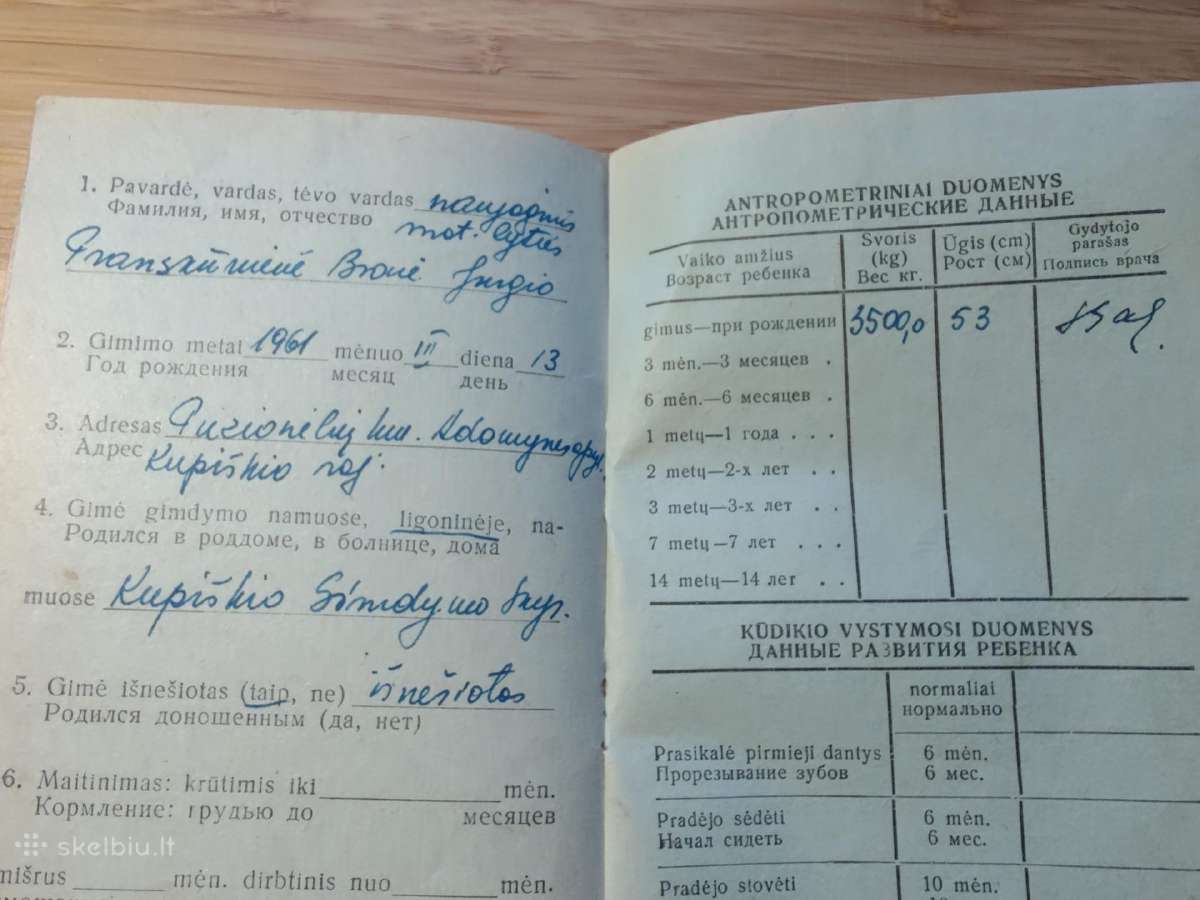 1. Pavardė, vardas, tėvo vardas naujagimis
Фамилия, имя, отчество mot. lyties
Pranskūnienė Bronė Jurgio
2. Gimimo metai 1961 mėnuo III diena 13
Год рождения месяц день
3. Adresas km. Adomynės apyl.
Адрес Kupiškio raj.
4. Gimė gimdymo namuose, ligoninėje, na-
Родился в роддоме, в болнице, дома
muose Kupiškio Gimdymo skyr.
5. Gimė išnešiotas (taip, ne) išnešiotas
Родился доношенным (да, нет)
6. Maitinimas: krūtimis iki mėn.
Кормление: грудью до месяцев
mišrus mėn. dirbtinis nuo mėn.
skelbiu.lt
ANTROPOMETRINIAI DUOMENYS
АНТРОПОМЕТРИЧЕСКИЕ ДАННЫЕ
Vaiko amžius Svoris (kg) Ūgis (cm) Gydytojo parašas
Возраст ребенка Вес кг. Рост (см) Полпись врача
gimus—при рождении 3500,0 53
3 mėn.—3 месяцев .
6 mėn.—6 месяцев .
1 metų—1 года . . .
2 metų—2-х лет . .
3 metų—3-х лет . .
7 metų—7 лет . . .
14 metų—14 лег . .
KŪDIKIO VYSTYMOSI DUOMENYS
ДАННЫЕ РАЗВИТИЯ РЕБЕНКА
normaliai
нормально
Prasikalė pirmieji dantys 6 mėn.
Прорезывание зубов 6 мес.
Pradėjo sėdėti 6 mėn.
Начал сидеть 6 мес.
Pradėjo stovėti 10 mėn.